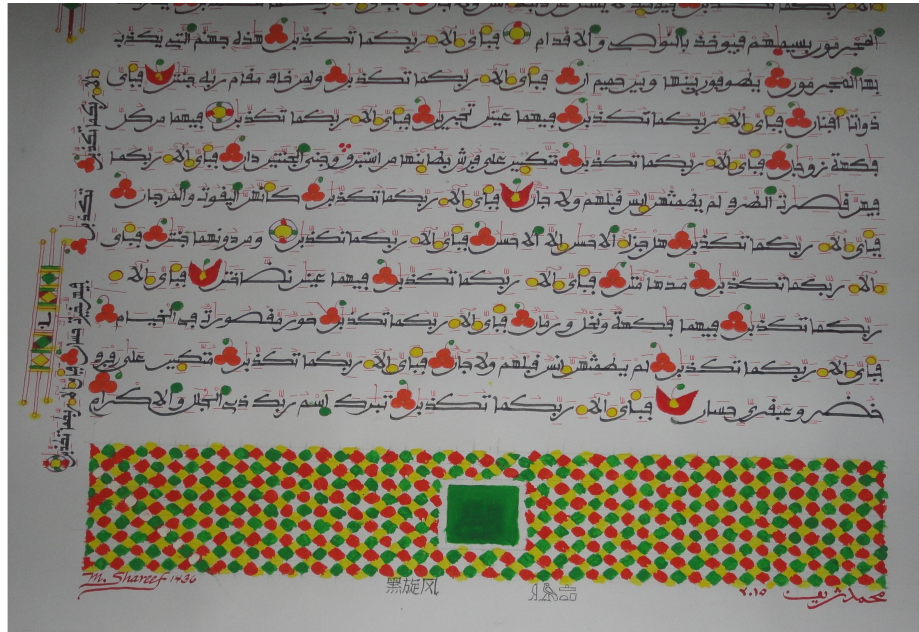 المجرمون بسيمهم فيوخذ بالنوصى والاقدام فباى الاء ربكما تكذبن هذه جهنم التى يكذب
بها المجرمون يطوفون بينها وبين حميم ان فباى الاء ربكما تكذبن ولمن خاف مقام ربه جنتن فباى
الاء ربكما تكذبن
ذواتا افنان فباى الاء ربكما تكذبن فيهما عينن تجرين فباى الاء ربكما تكذبن فيهما من كل
فكهة زوجن فباى الاء ربكما تكذبن متكين على فرش بطاينها من استبرق وجنى الجنتين دان فباى الاء ربكما
تكذبن
فيهن قصرت الطرف لم يطمثهن انس قبلهم ولا جان فباى الاء ربكما تكذبن كانهن الياقوت والمرجان
فباى الاء ربكما تكذبن هل جزاء الاحسن الا الاحسن فباى الاء ربكما تكذبن ومن دونهما جنتن فباى
الاء ربكما تكذبن مدهامتن فباى الاء ربكما تكذبن فيهما عينن نضاختن فباى الاء
ربكما تكذبن فيهما فكهة ونخل ورمان فباى الاء ربكما تكذبن حور مقصورت فى الخيام
فيهن خيرت حسان فباى الاء ربكما تكذبن
فباى الاء ربكما تكذبن لم يطمثهن انس قبلهم ولا جان فباى الاء ربكما تكذبن متكين على رفرف
خضر وعبقرى حسان فباى الاء ربكما تكذبن تبرك اسم ربك ذى الجلل والاكرام
M. Shareef 1436
黑旋风
محمد شريف ٢٠١٥